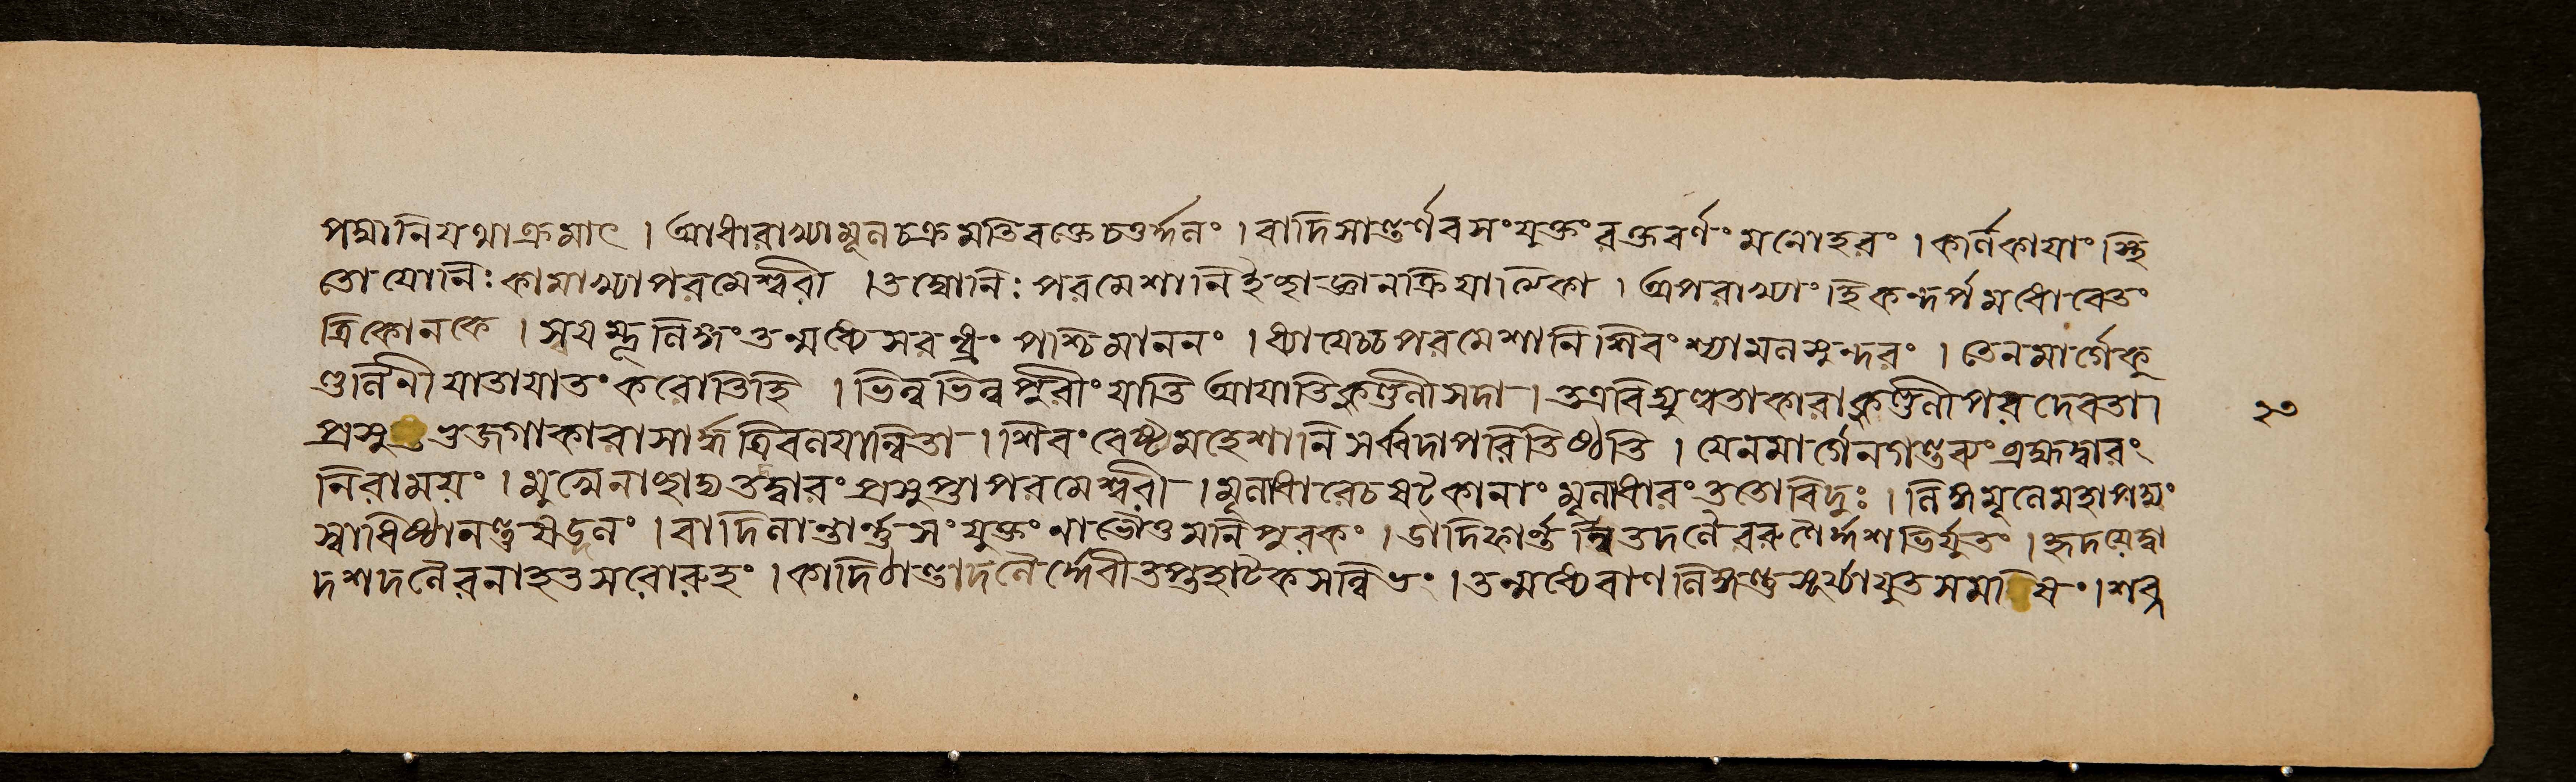 পদ্মানিযথাক্রমাৎ । আধারাখ্যামূলচক্রমতিরক্তেচতুর্দ্দলং । বাদিসান্তর্ণবসংযুক্তংরক্তবর্ণংমনোহরং । কর্ণিকাযাংস্থি
তোযোনিঃকামাখ্যাপরমেশ্বরী । তদ্যোনিঃপরমেশানিইচ্ছাজ্ঞানক্রিযাত্মিকা । অপরাখ্যাংহিকন্দর্পমধোবেতং
ত্রিকোনকে । স্বযম্ভূলিঙ্গংতন্মধ্যেসরন্ধ্রংপশ্চিমাননং । ধ্যাযেচ্চপরমেশানিশিবংশ্যামলসুন্দরং । তেনমার্গেকু
ণ্ডলিনীযাতাযাতংকরোতিহি । ভিন্নভিন্নপুরীংযাতিআযাতিকুণ্ডলীসদা । তত্রবিদ্যুল্লতাকারাকুণ্ডলীপরদেবতা ।
প্রসুপ্তভুজগাকারাসার্দ্ধত্রিবলযান্বিতা । শিবংবেষ্ট্যমহেশানিসর্ব্বদাপরিতিষ্ঠতি । যেনমার্গেনগন্তব্যংব্রহ্মদ্বারং
নিরাময়ং । মুখেনাচ্ছাদ্যতদ্বারংপ্রসুপ্তাপরমেশ্বরী । মূলাধারেচষটকানাংমূলাধারংততোবিদুঃ । লিঙ্গমূলেমহাপদ্মং
স্বাধিষ্ঠানন্তুষড্দলং । বাদিলান্তার্ন্তসংযুক্তংনাভৌতুমনিপুরকং । ডাদিফার্ন্তদলৈররুণৈর্দ্দশভির্যুতং । হৃদযেদ্বা
দশদলৈরনাহতসরোরুহং । কাদিঠান্তাদলৈর্দ্দেবীতপ্তহাটকসন্নিভং । তন্মধ্যেবাণলিঙ্গন্তুসূর্য্যাযুতসম । শব্দ
২৩